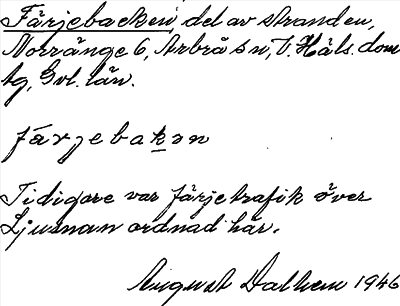 Färjebacken, del av stranden,
Norränge 6, Arbrå sn, V. Häls. dom
sg, Gvl. län.
färjebakən
Tidigare var färjetrafik över
Ljusnan ordnad här.
August Dalhem 1946